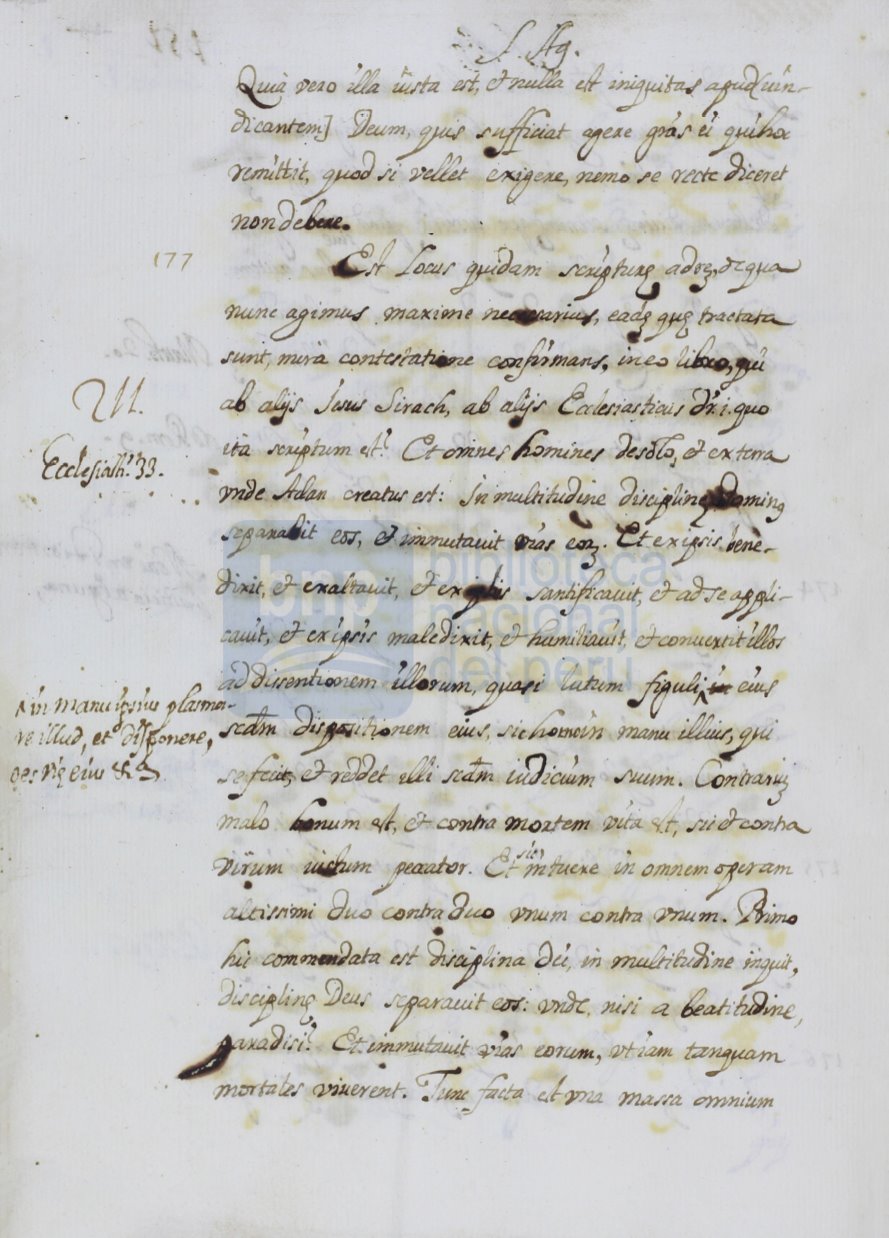 S. Ag.
Quia vero illa iusta est, et nulla est iniquitas apud [uin-
dicantem] Deum, quis sufficiat agere grãs ei qui hoc
remittit, quod si vellet exigere, nemo se recte diceret
non debere.
177
Est Locus quidam scripturę ad rẽ, de qua
nunc agimus maxime necessarius, eadẽ quę tractata
sunt, mira contestatione confirmans, in eo libro, qui
ab alijs Jesus Sirach, ab alijs Ecclesiasticus dr̃: in quo
ita scriptum est. Et omnes homines de solo, et ex terra
Ecclesiasti. 33.
vnde Adan creatus est: In multitudine disciplinę Dominus
separabit eos, et immutauit vias eorum. Et ex ipsis bene-
dixit, et exaltauit, et ex ipsis santificauit, et ad se appli-
cauit, et ex ipsis maledixit, et humiliauit, et conuertit illos
ad dissentionem illorum, quasi lutum figuli in eius
in manu ipsius plasma-
re illud, et disponere,
oẽs vię eius &a
scdm dispositionem eius, sic homo in manu illius, qui
se fecit, et reddet illi scdm iudicium suum. Contrariũ
malo bonum est, et contra mortem vita est, sic et contra
virum iustum peccator. Et sic intuere in omnem operam
altissimi duo contra duo vnum contra vnum. Primo
hic commendata est disciplina dei, in multitudine inquit,
disciplinę Deus separauit eos: vnde, nisi a beatitudine,
paradisi. Et immutauit vias eorum, vt iam tanquam
mortales viuerent. Tunc facta est vna massa omnium
biblioteca
nacional
del perú
bnp